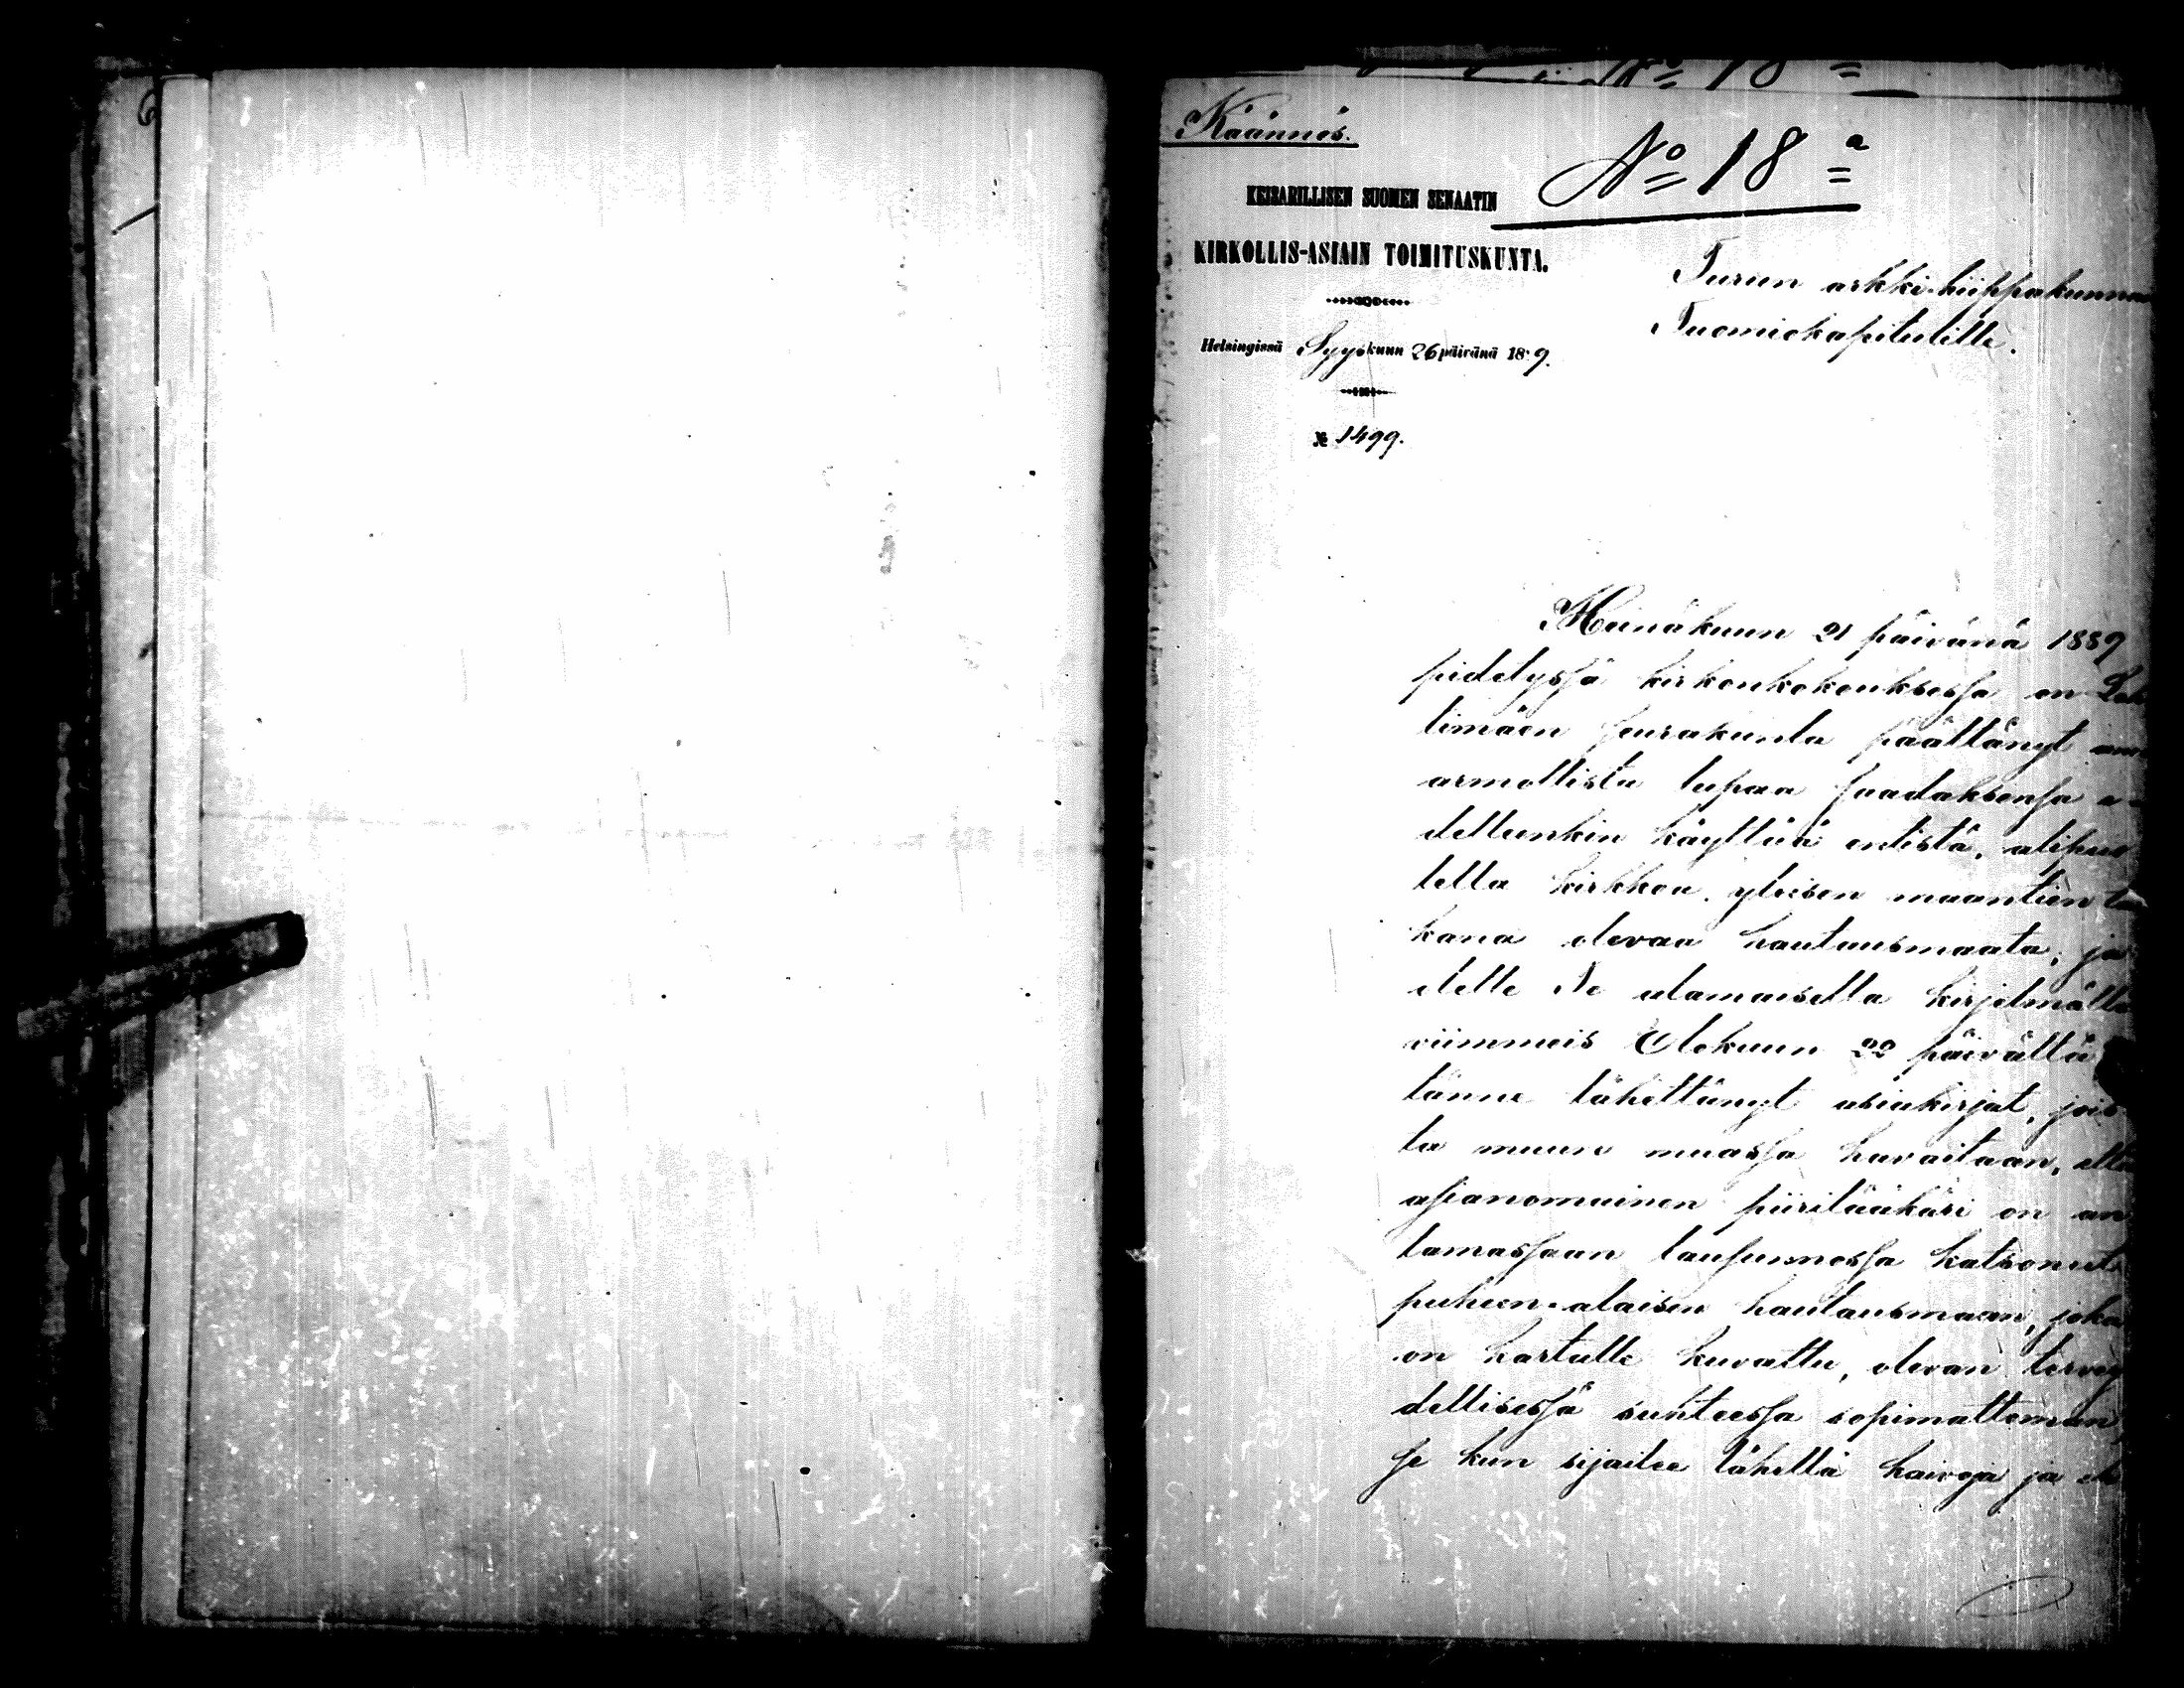 Käännös.
No 18 a
KEISARILLISEN SUOMEN SENAATIN
KIRKOLLIS-ASIAIN TOIMITUSKUNTA.
Turun arkki-hiippakunnan
Tuomiokapitulille.
Helsingissä Syyskuun 26 päivänä 18 9.
№ 1499.
Heinäkuun 21 päivänä 1889
pidetyssä kirkonkokouksessa on
timäen seurakunta päättänyt
armollista lupaa saadaksensa
delleenkin käyttää entistä, ulipuo
lella kirkkoa, yleisen maantien ta
kana olevaa hautausmaata, ja
olette Te alamaisella kirjelmällä
viimmeis Elokuun 22 päivältä
tänne lähettänyt asiakirjat, jois-
ta muun muassa havaitaan, että
asianomainen piirilääkäri on an
tamassaan lausunnossa katsonut
puheen-alaisen hautausmaan, joka
on kartalle kuvattu, olevan tervey
dellisessä suhteessa sopimattoman,
se kun sijaitee lähellä kaivoja ja